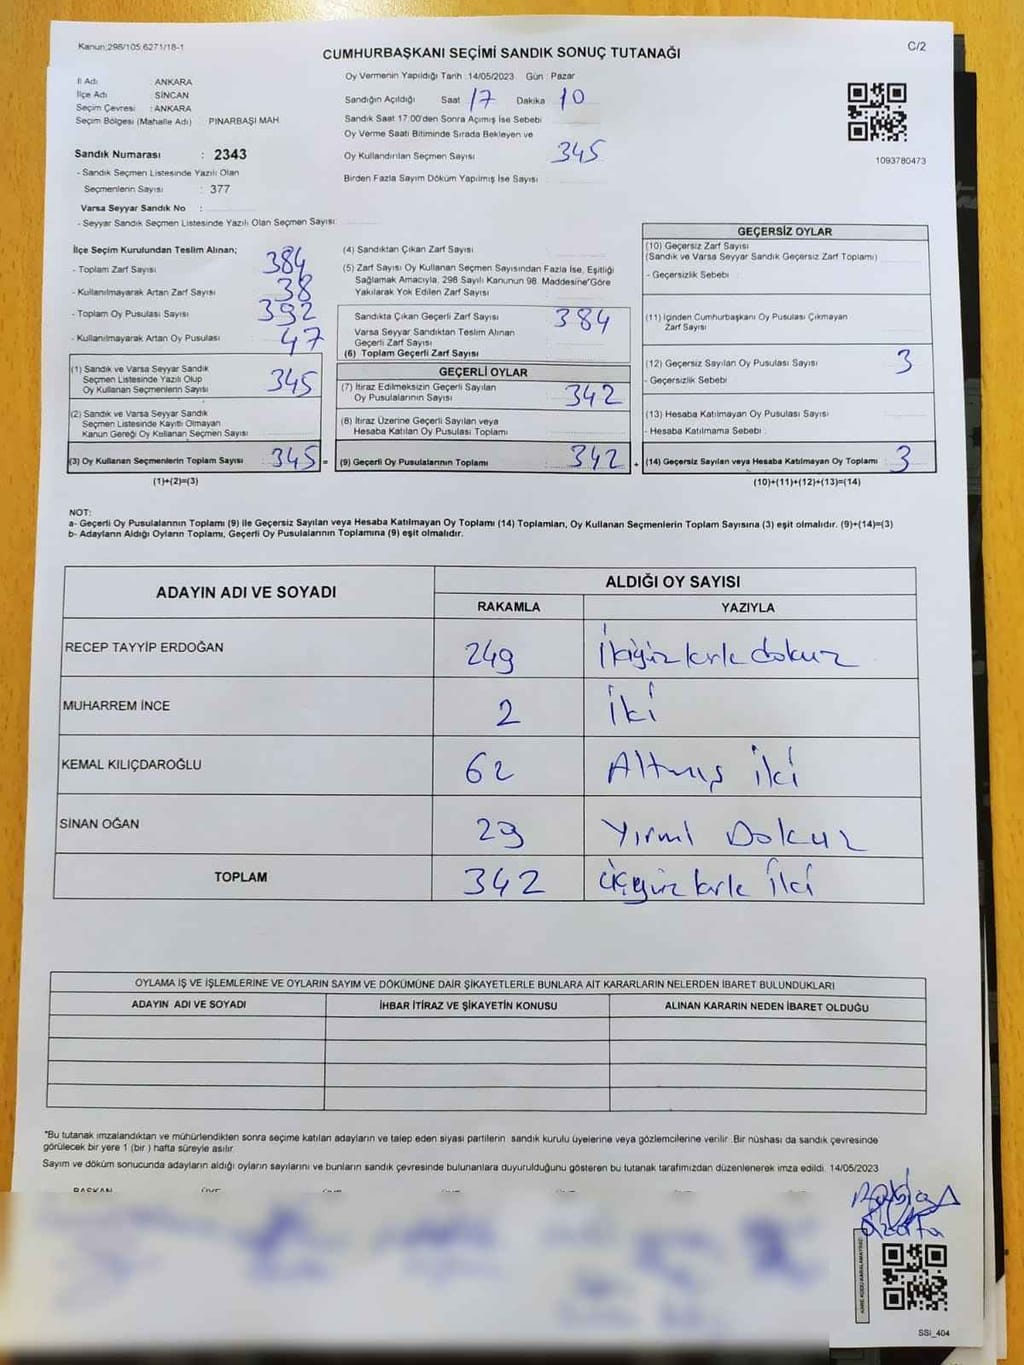 Kanun;298/105,6271/18-1
C/2
CUMHURBAŞKANI SEÇİMİ SANDIK SONUÇ TUTANAĞI
İl Adı ANKARA
İlçe Adı SİNCAN
Seçim Çevresi : ANKARA
Seçim Bölgesi (Mahalle Adı) PINARBAŞI MAH
Sandık Numarası : 2343
- Sandık Seçmen Listesinde Yazılı Olan
Seçmenlerin Sayısı : 377
Varsa Seyyar Sandık No :
- Seyyar Sandık Seçmen Listesinde Yazılı Olan Seçmen Sayısı:
Oy Vermenin Yapıldığı Tarih : 14/05/2023 Gün : Pazar
Sandığın Açıldığı Saat 17 Dakika 10
Sandık Saat 17:00'den Sonra Açımış İse Sebebi
Oy Verme Saati Bitiminde Sırada Bekleyen ve
Oy Kullandırılan Seçmen Sayısı 345
Birden Fazla Sayım Döküm Yapılmış İse Sayısı
1093780473
İlçe Seçim Kurulundan Teslim Alınan;
- Toplam Zarf Sayısı 384
- Kullanılmayarak Artan Zarf Sayısı 38
- Toplam Oy Pusulası Sayısı 392
- Kullanılmayarak Artan Oy Pusulası 47
(1) Sandık ve Varsa Seyyar Sandık
Seçmen Listesinde Yazılı Olup
Oy Kullanan Seçmenlerin Sayısı 345
(2) Sandık ve Varsa Seyyar Sandık
Seçmen Listesinde Kayıtlı Olmayan
Kanun Gereği Oy Kullanan Seçmen Sayısı
(3) Oy Kullanan Seçmenlerin Toplam Sayısı 345 =
(1)+(2)=(3)
(4) Sandıktan Çıkan Zarf Sayısı
(5) Zarf Sayısı Oy Kullanan Seçmen Sayısından Fazla İse, Eşitliği
Sağlamak Amacıyla, 298 Sayılı Kanunun 98. Maddesine Göre
Yakılarak Yok Edilen Zarf Sayısı
Sandıkta Çıkan Geçerli Zarf Sayısı 384
Varsa Seyyar Sandıktan Teslim Alınan
Geçerli Zarf Sayısı
(6) Toplam Geçerli Zarf Sayısı
GEÇERLİ OYLAR
(7) İtiraz Edilmeksizin Geçerli Sayılan
Oy Pusulalarının Sayısı 342
(8) İtiraz Üzerine Geçerli Sayılan veya
Hesaba Katılan Oy Pusulası Toplamı
(9) Geçerli Oy Pusulalarının Toplamı 342 +
GEÇERSİZ OYLAR
(10) Geçersiz Zarf Sayısı
(Sandık ve Varsa Seyyar Sandık Geçersiz Zarf Toplamı)
- Geçersizlik Sebebi :
(11) İçinden Cumhurbaşkanı Oy Pusulası Çıkmayan
Zarf Sayısı
(12) Geçersiz Sayılan Oy Pusulası Sayısı 3
- Geçersizlik Sebebi :
(13) Hesaba Katılmayan Oy Pusulası Sayısı
- Hesaba Katılmama Sebebi :
(14) Geçersiz Sayılan veya Hesaba Katılmayan Oy Toplamı 3
(10)+(11)+(12)+(13)=(14)
NOT:
a- Geçerli Oy Pusulalarının Toplamı (9) ile Geçersiz Sayılan veya Hesaba Katılmayan Oy Toplamı (14) Toplamları, Oy Kullanan Seçmenlerin Toplam Sayısına (3) eşit olmalıdır. (9)+(14)=(3)
b- Adayların Aldığı Oyların Toplamı, Geçerli Oy Pusulalarının Toplamına (9) eşit olmalıdır.
ADAYIN ADI VE SOYADI ALDIĞI OY SAYISI
RAKAMLA YAZIYLA
RECEP TAYYİP ERDOĞAN 249 İkiyüz kırk dokuz
MUHARREM İNCE 2 İki
KEMAL KILIÇDAROĞLU 62 Altmış iki
SİNAN OĞAN 29 Yirmi Dokuz
TOPLAM 342 üçyüz kırk İki
OYLAMA İŞ VE İŞLEMLERİNE VE OYLARIN SAYIM VE DÖKÜMÜNE DAİR ŞİKAYETLERLE BUNLARA AİT KARARLARIN NELERDEN İBARET BULUNDUKLARI
ADAYIN ADI VE SOYADI İHBAR İTİRAZ VE ŞİKAYETİN KONUSU ALINAN KARARIN NEDEN İBARET OLDUĞU
*Bu tutanak imzalandıktan ve mühürlendikten sonra seçime katılan adayların ve talep eden siyasi partilerin sandık kurulu üyelerine veya gözlemcilerine verilir. Bir nüshası da sandık çevresinde
görülecek bir yere 1 (bir ) hafta süreyle asılır.
Sayım ve döküm sonucunda adayların aldığı oyların sayılarını ve bunların sandık çevresinde bulunanlara duyurulduğunu gösteren bu tutanak tarafımızdan düzenlenerek imza edildi. 14/05/2023
BAŞKAN ÜYE
SSi_404